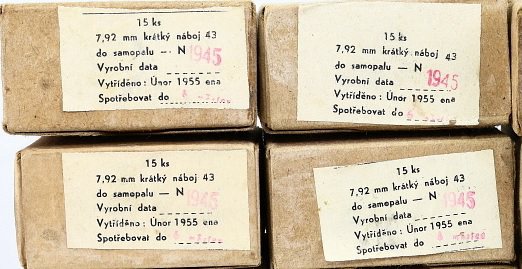 15 ks
7,92 mm krátký náboj 43
do samopalu — N
1945
Vyrobní data
Vytříděno: Únor 1955 ena
Spotřebovat do 6
15 ks
7,92 mm krátký náboj 43
do samopalu — N
1945
Vyrobní data
Vytříděno: Únor 1955 ena
Spotřebovat do 6
15 ks
7,92 mm krátký náboj 43
do samopalu — N
1945
Vyrobní data
Vytříděno: Únor 1955 ena
Spotřebovat do 6
15 ks
7,92 mm krátký náboj 43
do samopalu — N
1945
Vyrobní data
Vytříděno: Únor 1955 ena
Spotřebovat do 6